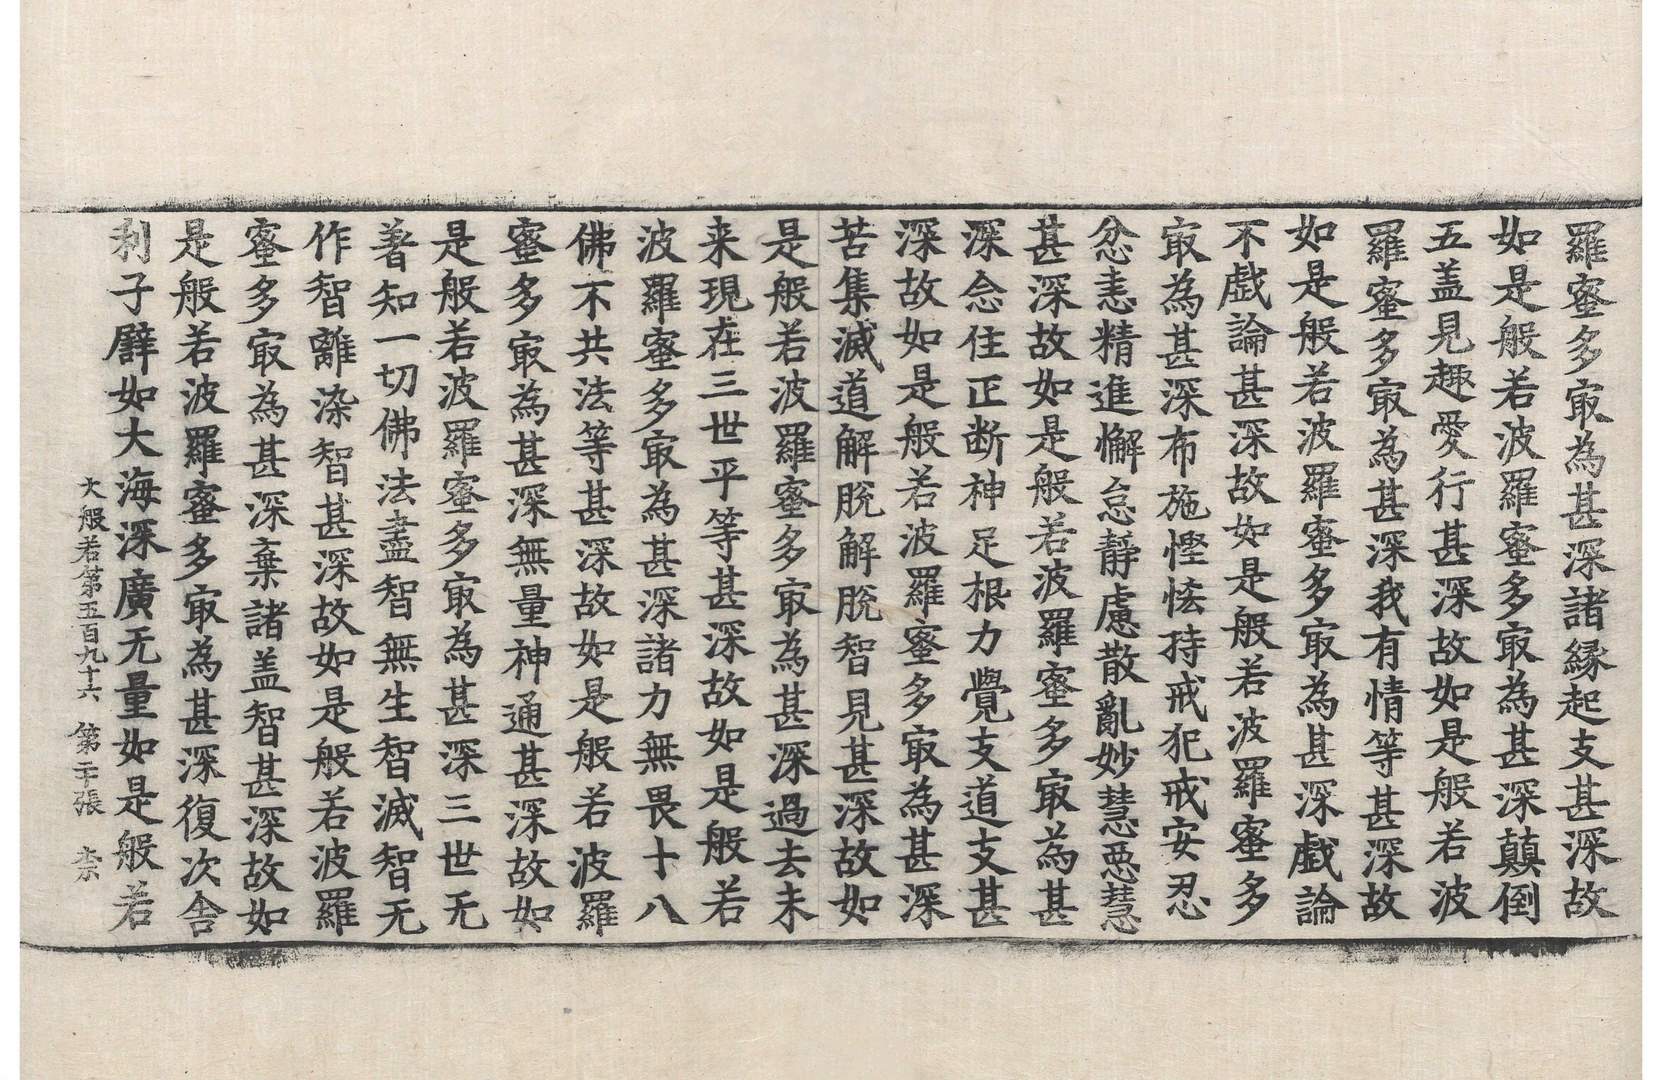 羅蜜多㝡為甚深諸緣起支甚深故
如是般若波羅蜜多㝡為甚深顛倒
五盖見趣愛行甚深故如是般若波
羅蜜多㝡為甚深我有情等甚深故
如是般若波羅蜜多㝡為甚深戲論
不戲論甚深故如是般若波羅蜜多
㝡為甚深布施慳悋持戒犯戒安忍
忿恚精進懈怠靜慮散亂妙慧惡慧
甚深故如是般若波羅蜜多㝡為甚
深念住正斷神足根力覺支道支甚
深故如是般若波羅蜜多㝡為甚深
苦集滅道解脫解脫智見甚深故如
是般若波羅蜜多㝡為甚深過去未
来現在三世平等甚深故如是般若
波羅蜜多㝡為甚深諸力無畏十八
佛不共法等甚深故如是般若波羅
蜜多㝡為甚深無量神通甚深故如
是般若波羅蜜多㝡為甚深三世无
著知一切佛法盡智無生智滅智无
作智離染智甚深故如是般若波羅
蜜多㝡為甚深棄諸盖智甚深故如
是般若波羅蜜多㝡為甚深復次舍
利子譬如大海深廣无量如是般若
大般若第五百九十六 第二十張 柰